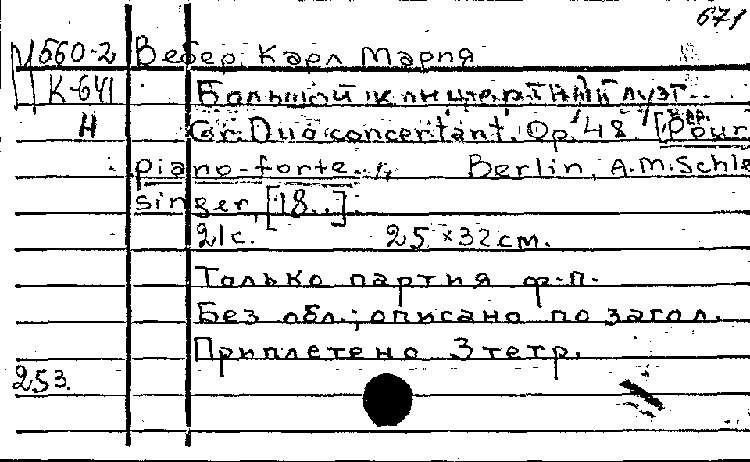 671
М560-2 Вебер, Карл Мария
К-641 Большой концертный дуэт
Н Gr. Duo concertant. Op. 48 [Pour
piano-forte. Berlin, A.M.Schle
singer, [18..].
21с. 25×32 см.
Только партия ф-п.
Без обл.; описано по загол.
Приплетено 3 тетр.
253.